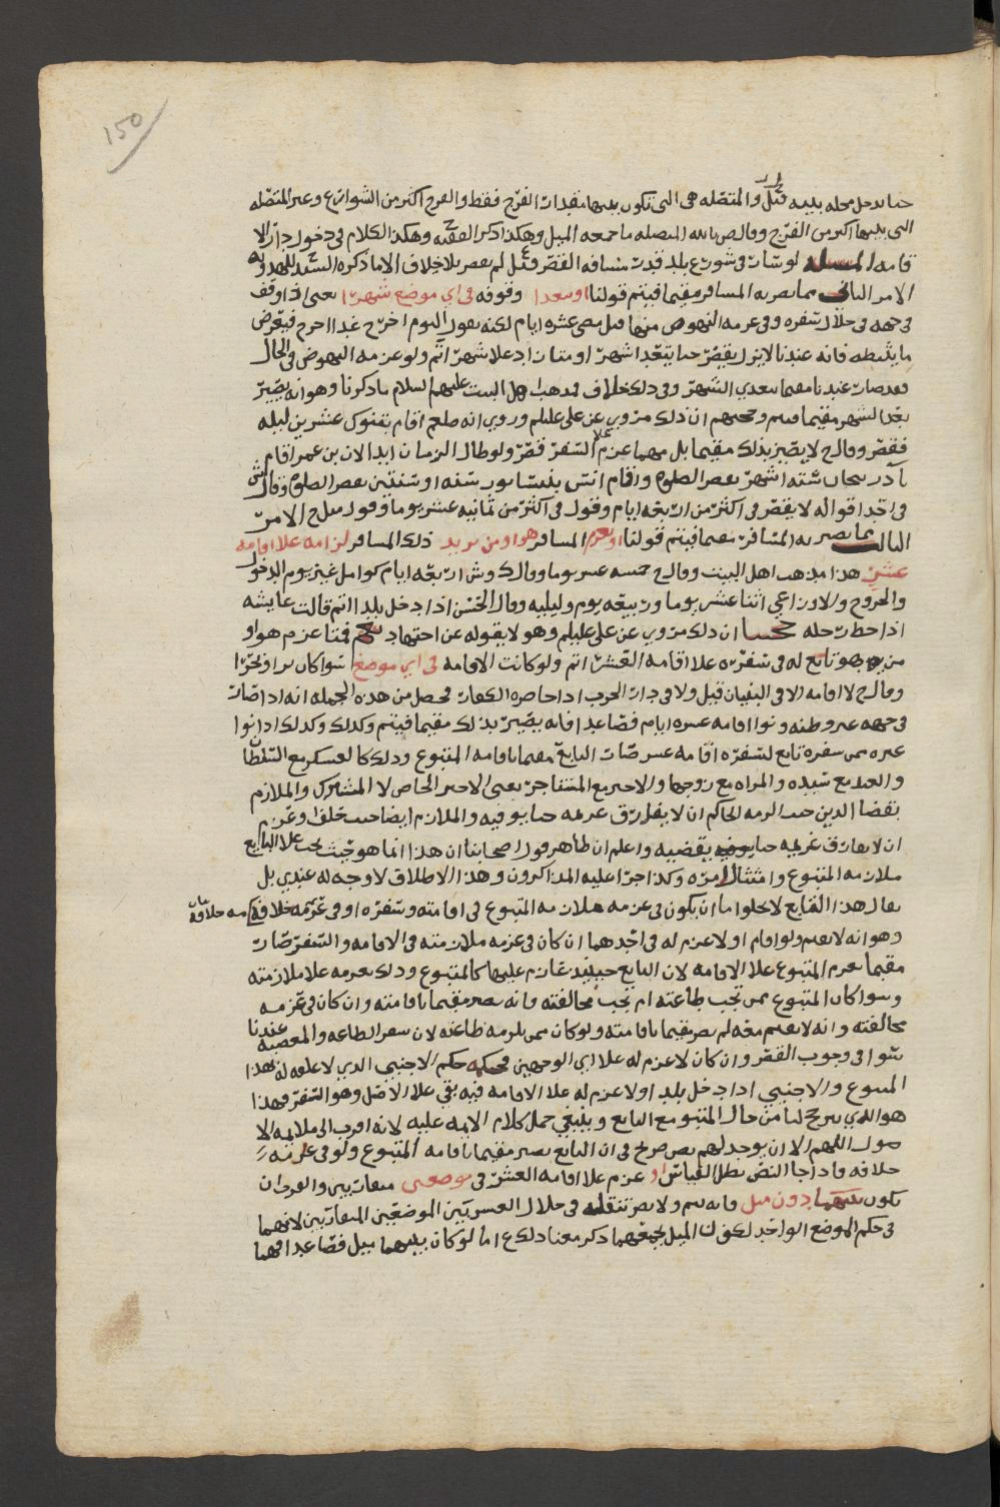 150
حتا يدخل محله بلده قيل والمتصله هي التي تكون بينها مقدار الفرح فقط والفرح اكثر من الشوارع وغير المتصله
التي بينها اكثر من الفرح وقال ص بالله المتصله ما جمعه الميل وهكذا ذكر الفقيه ح وهكذا الكلام في دخول دار الا
قامه المساله لو سار في شوارع بلد قدر مسافه القصر قيل لم يقصر بلا خلاف الا ما ذكره السيد
الامر الثاني مما يصير به المسافر مقيما فيتم قولنا او تعدا وقوفه في اي موضع شهرا يعني اذا وقف
في جهه في خلال سفره وفي عزمه النهوض منها قبل مضي عشره ايام لكنه يقول اليوم اخرج غدا اخرج فيعرض
ما يثبطه فانه عندنا لا يزل يقصر حتا يتعدا شهرا ومتا زاد علا شهر اتم ولو عزمه النهوض في الحال
فقد صار عندنا مقيما بتعدي الشهر وفي ذلك خلاف مذهب اهل البيت عليهم السلام ما ذكرنا وهو انه يصير
بعد الشهر مقيما فيتم وحجتهم ان ذلك مروي عن علي عليلم وروي انه صلعم اقام بتبوك عشرين ليله
فقصر وقال ح لا يصير بذلك مقيما بل مهما عزم علا السفر قصر ولو طال الزمان ابدا لان بن عمر اقام
باذربيجان سته اشهر يقصر الصلوه واقام انس بنيسابور سنه او سنتين يقصر الصلوه وقال ش
في احد اقواله لا يقصر في اكثر من اربعه ايام وقول في اكثر من ثمانيه عشر يوما وقول مثل ح الامر
الثالث مما يصير به المسافر مقيما فيتم قولنا او يعزم المسافر هو او من يريد ذلك المسافر لزامه علا اقامه
عشر هذا مذهب اهل البيت وقال ح خمسه عشر يوما وقال ك وش اربعه ايام كوامل غير يوم الدخول
والخروج والاوزاعي اثنا عشر يوما وربيعه يوم وليليه وقال الحسن اذا دخل بلدا اتم قالت عايشه
اذا حط رحله حجتنا ان ذلك مروي عن علي عليلم وهو لا يقوله عن اجتهاد فمتا عزم هو او
من هو تابع له في سفره علا اقامه العشر اتم ولو كانت الاقامه في اي موضع سوا كان برا او بحرا
وقال ح لا اقامه الا في البنيان قيل ولا في دار الحرب اذا حاصره الكفار فحصل من هذه الجمله انه اذا صار
في جهه غير وطنه ونوا اقامه عشره ايام فصاعدا فانه يصير بذلك مقيما فيتم وكذلك وكذلك اذا نوا
غيره ممن سفره تابع لسفره اقامه عشر صار التابع مقيما باقامه المتبوع وذلك كالعسكر مع السلطان
والعبد مع سيده والمراه مع زوجها والاجير مع المستاجر يعني الاجير الخاص لا المشترك والملازم
بقضا الدين حيث الزمه الحاكم ان لا يفارق غريمه حتا يوفيه والملازم ايضا حيث حلف او عزم
ان لا يفارق غريمه حتا يقضيه واعلم ان ظاهر قول اصحابنا ان هذا انما هو حيث يجب علا التابع
ملازمه المتبوع وامتثال امره وكذا اجرا عليه المذاكرون وهذا الاطلاق لا وجه له عندي بل
يقال هذا التابع لا يخلوا ما ان يكون في عزمه ملازمه المتبوع في اقامته وسفره او في عزمه خلافه
وهو انه لا يقيم ولو اقام او لا عزم له في احدهما ان كان في عزمه ملازمته في الاقامه والسفر صار
مقيما بعزم المتبوع علا الاقامه لان التابع حينئذ عازم عليها كالمتبوع وذلك بعزمه علا ملازمته
وسوا كان المتبوع ممن تجب طاعته ام تجب مخالفته فانه يصير مقيما باقامته وان كان في عزمه
مخالفته وانه لا يقيم معه لم يصر مقيما باقامته ولو كان ممن يلزمه طاعته لان سفر الطاعه والمعصيه عندنا
سوا في وجوب القصر وان كان لا عزم له علا اي الوجهين فحكمه حكم الاجنبي الذي لا علقه له بهذا
المتبوع والاجنبي اذا دخل بلدا ولا عزم له علا الاقامه فيه بقي علا الاصل وهو السفر فهذا
هو الذي يترجح لنا من حال المتبوع مع التابع وينبغي حمل كلام الايمه عليه لانه اقرب الى ملايمه الا
صول اللهم الا ان يوجد لهم نص صريح في ان التابع يصير مقيما باقامه المتبوع ولو في عزمه
خلافه فاذا جا النص بطل القياس او عزم علا اقامه العشر في موضعين متقاربين والقرب ان
تكون بينهما دون ميل فانه يتم ولا يضر تنقله في خلال العشر بين الموضعين المتقاربين لانهما
في حكم الموضع الواحد لكون الميل يجمعهما ذكر معنا ذلك ع اما لو كان بينهما ميل فصاعدا فهما